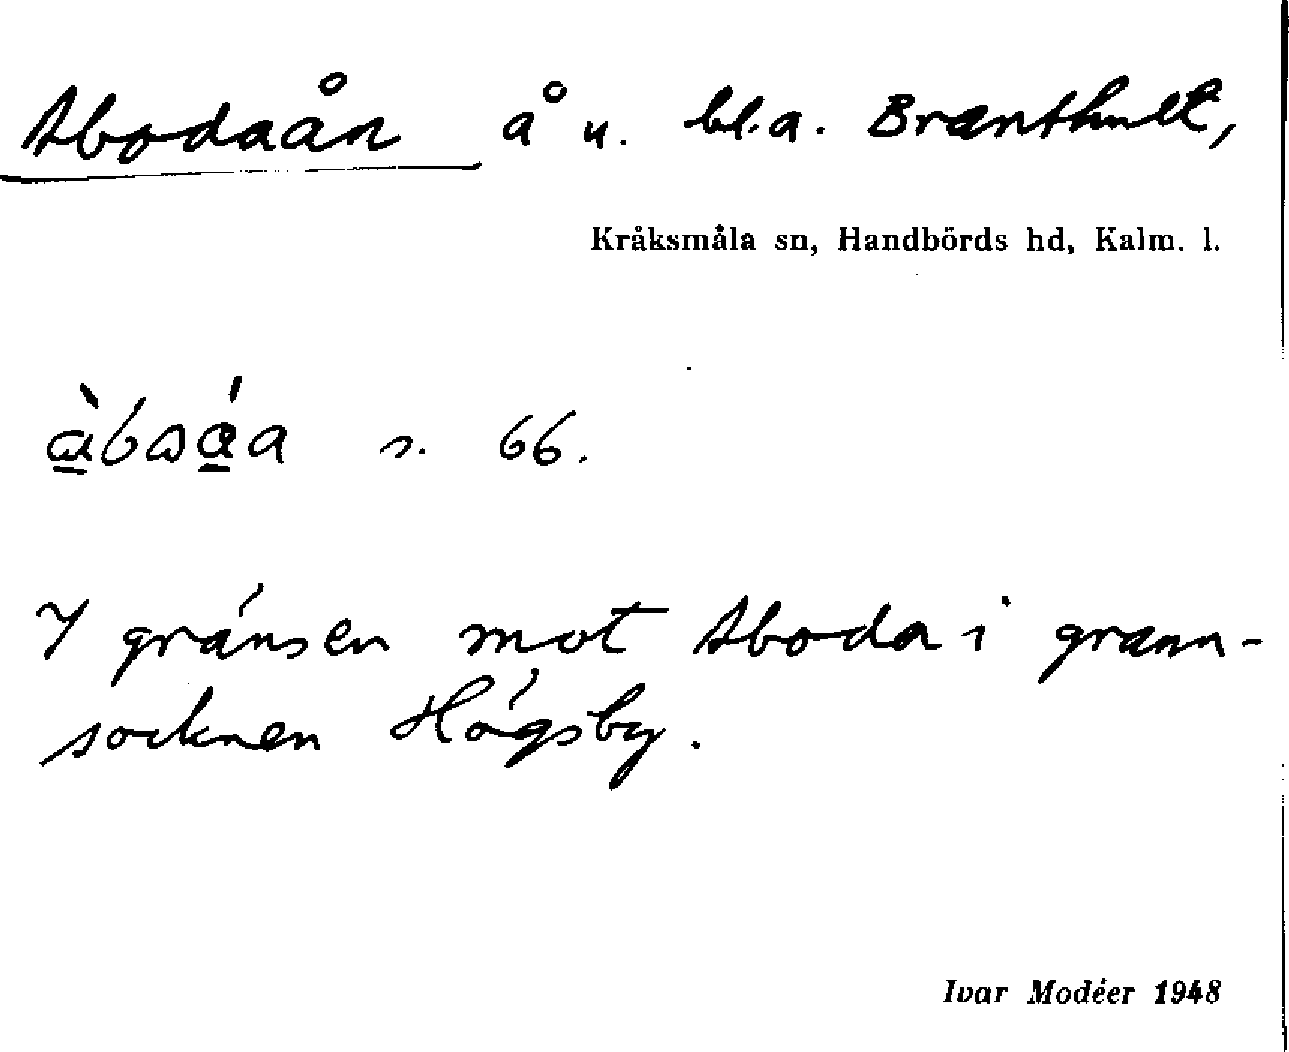 Abodaån å u. bl.a. Branthult,
Kråksmåla sn, Handbörds hd, Kalm. l.
s. 66.
I gränsen mot Aboda i grann-
socknen Högsby.
Ivar Modéer 1948